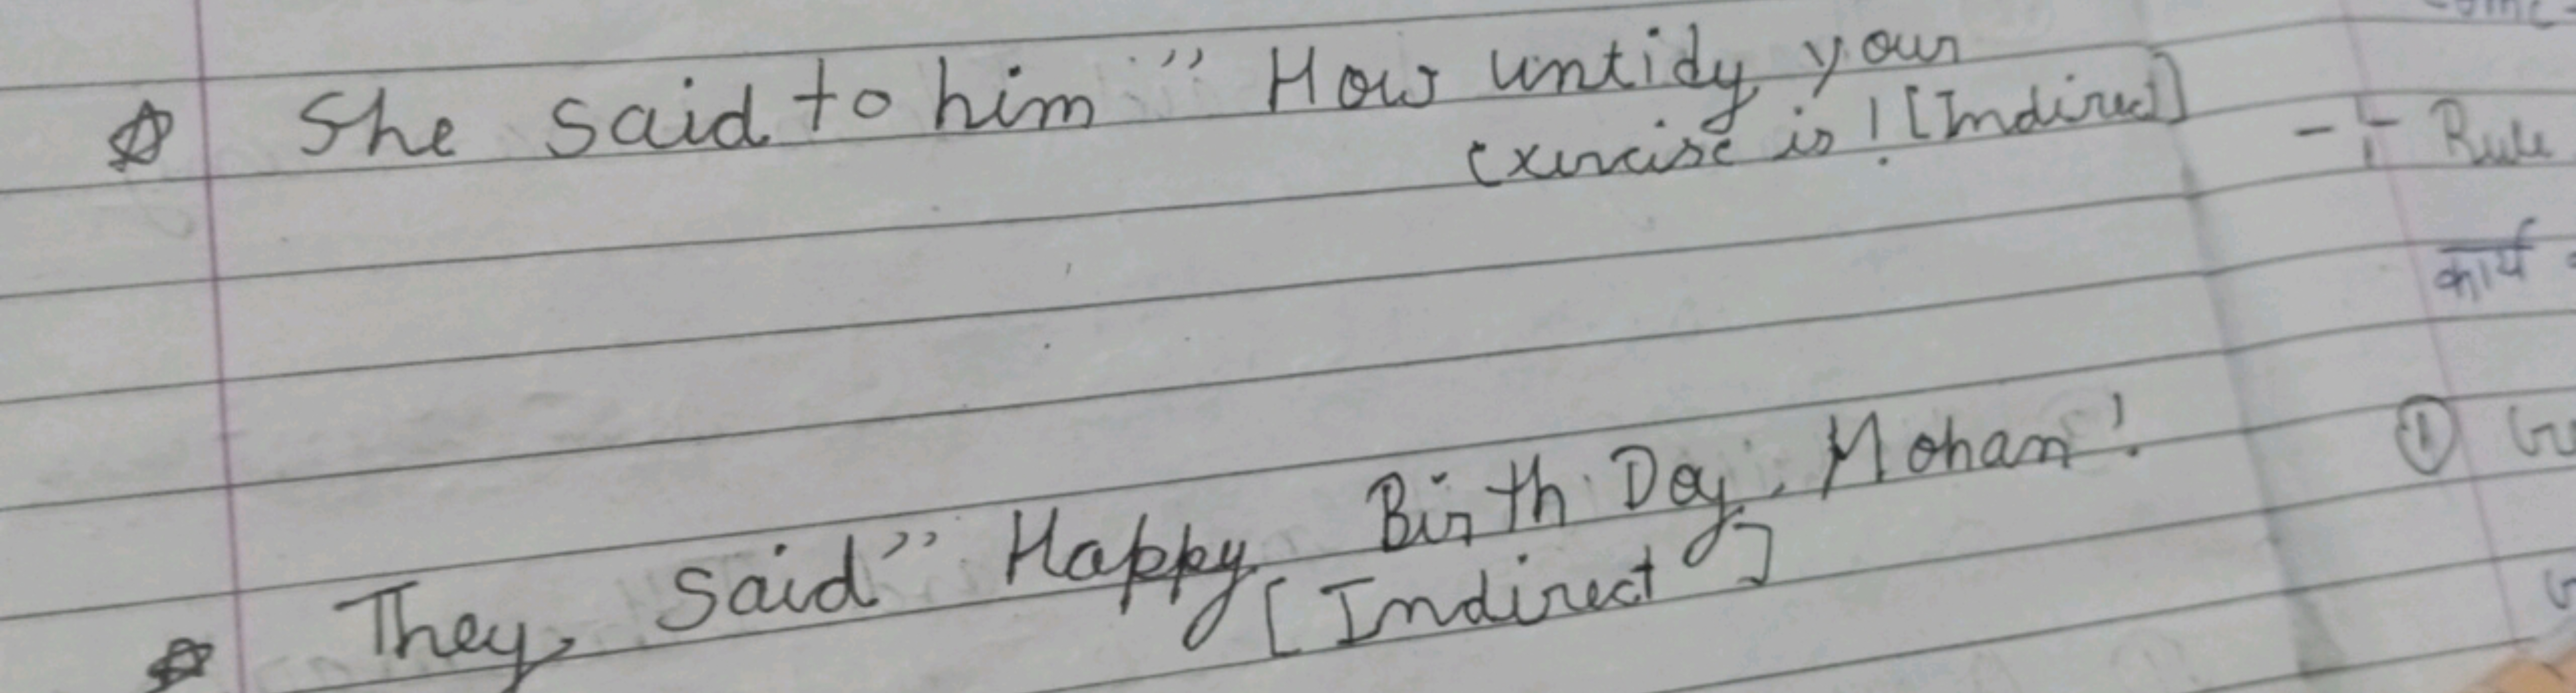 She said to him " How untidy your
exercise is ! [Indirect]
They, said" Happy Birth Day, Mohan !
[Indirect]
- Rule
कार्य
①